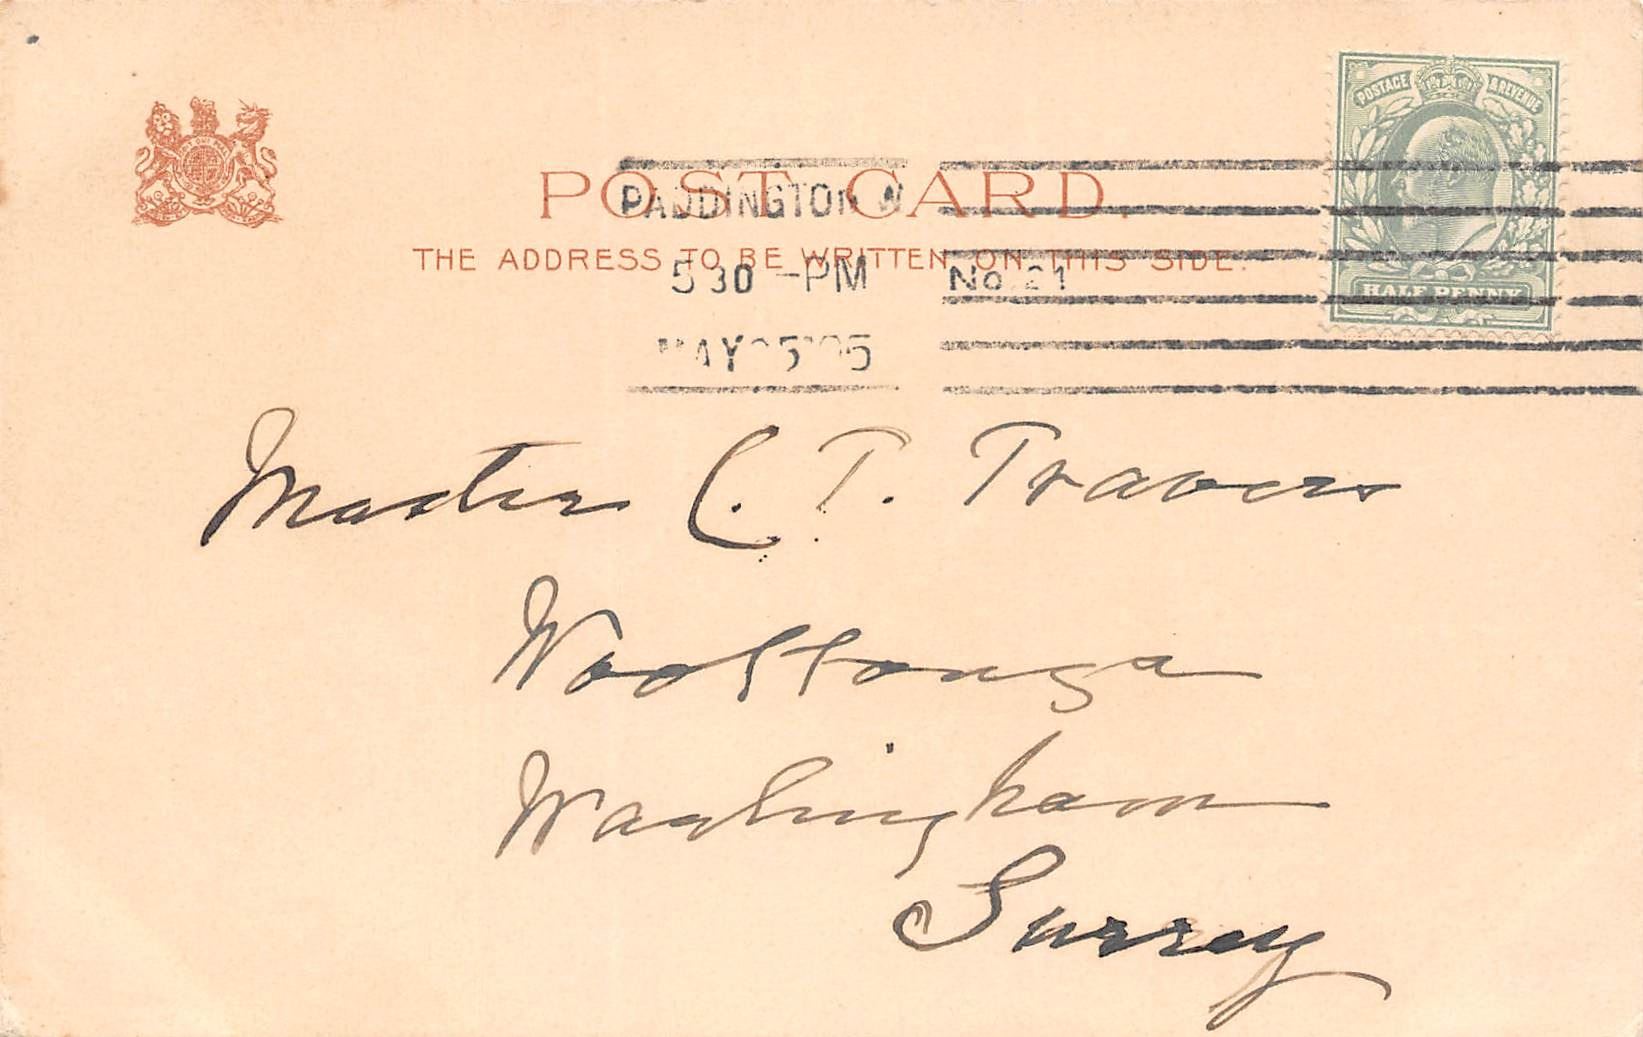 POSTAGE & REVENUE
HALF PENNY
POST CARD.
THE ADDRESS TO BE WRITTEN ON THIS SIDE.
PADDINGTON W
5 30 -PM No. 21
MAY 5
Master C. T. Travers
Surrey